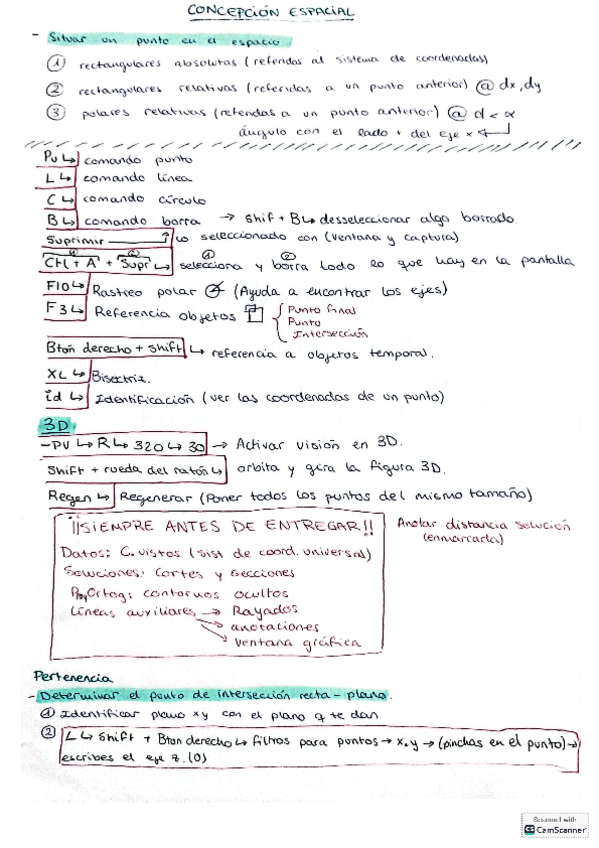 CONCEPCIÓN ESPACIAL
- Situar un punto en el espacio
① rectangulares absolutas (referidas al sistema de coordenadas)
② rectangulares relativas (referidas a un punto anterior) @ dx, dy
③ polares relativas (referidas a un punto anterior) @ d < α
ángulo con el lado + del eje x ↵
PU ↳ comando punto
L ↳ comando línea
C ↳ comando círculo
B ↳ comando borra → Shif + B ↳ desseleccionar algo borrado
Suprimir → lo seleccionado con (ventana y captura)
① ② ① ②
Ctrl + A + Supr ↳ selecciona y borra todo lo que hay en la pantalla
F10 ↳ Rastreo polar (Ayuda a encontrar los ejes)
F3 ↳ Referencia objetos { Punto final
Punto
Intersección
Btón derecho + shift ↳ referencia a objetos temporal.
XL ↳ Bisectriz.
id ↳ Identificación (ver las coordenadas de un punto)
3D
-PV ↳ R ↳ 320 ↳ 30 → Activar visión en 3D.
Shift + rueda del ratón ↳ orbita y gira la figura 3D.
Regen ↳ Regenerar (Poner todos los puntos del mismo tamaño)
¡¡SIEMPRE ANTES DE ENTREGAR!!
Anotar distancia solución
(enmarcada)
Datos: C. vistos (sist de coord. universal)
Soluciones: Cortes y secciones
Proy Ortog: contornos ocultos
Líneas auxiliares → Rayados
→ anotaciones
→ ventana gráfica
Pertenencia
- Determinar el punto de intersección recta - plano.
① Identificar plano xy con el plano q te dan
② L ↳ Shift + Btón derecho ↳ filtros para puntos → x,y → (pinchas en el punto) →
escribes el eje z. (0)
Scanned with
CS CamScanner